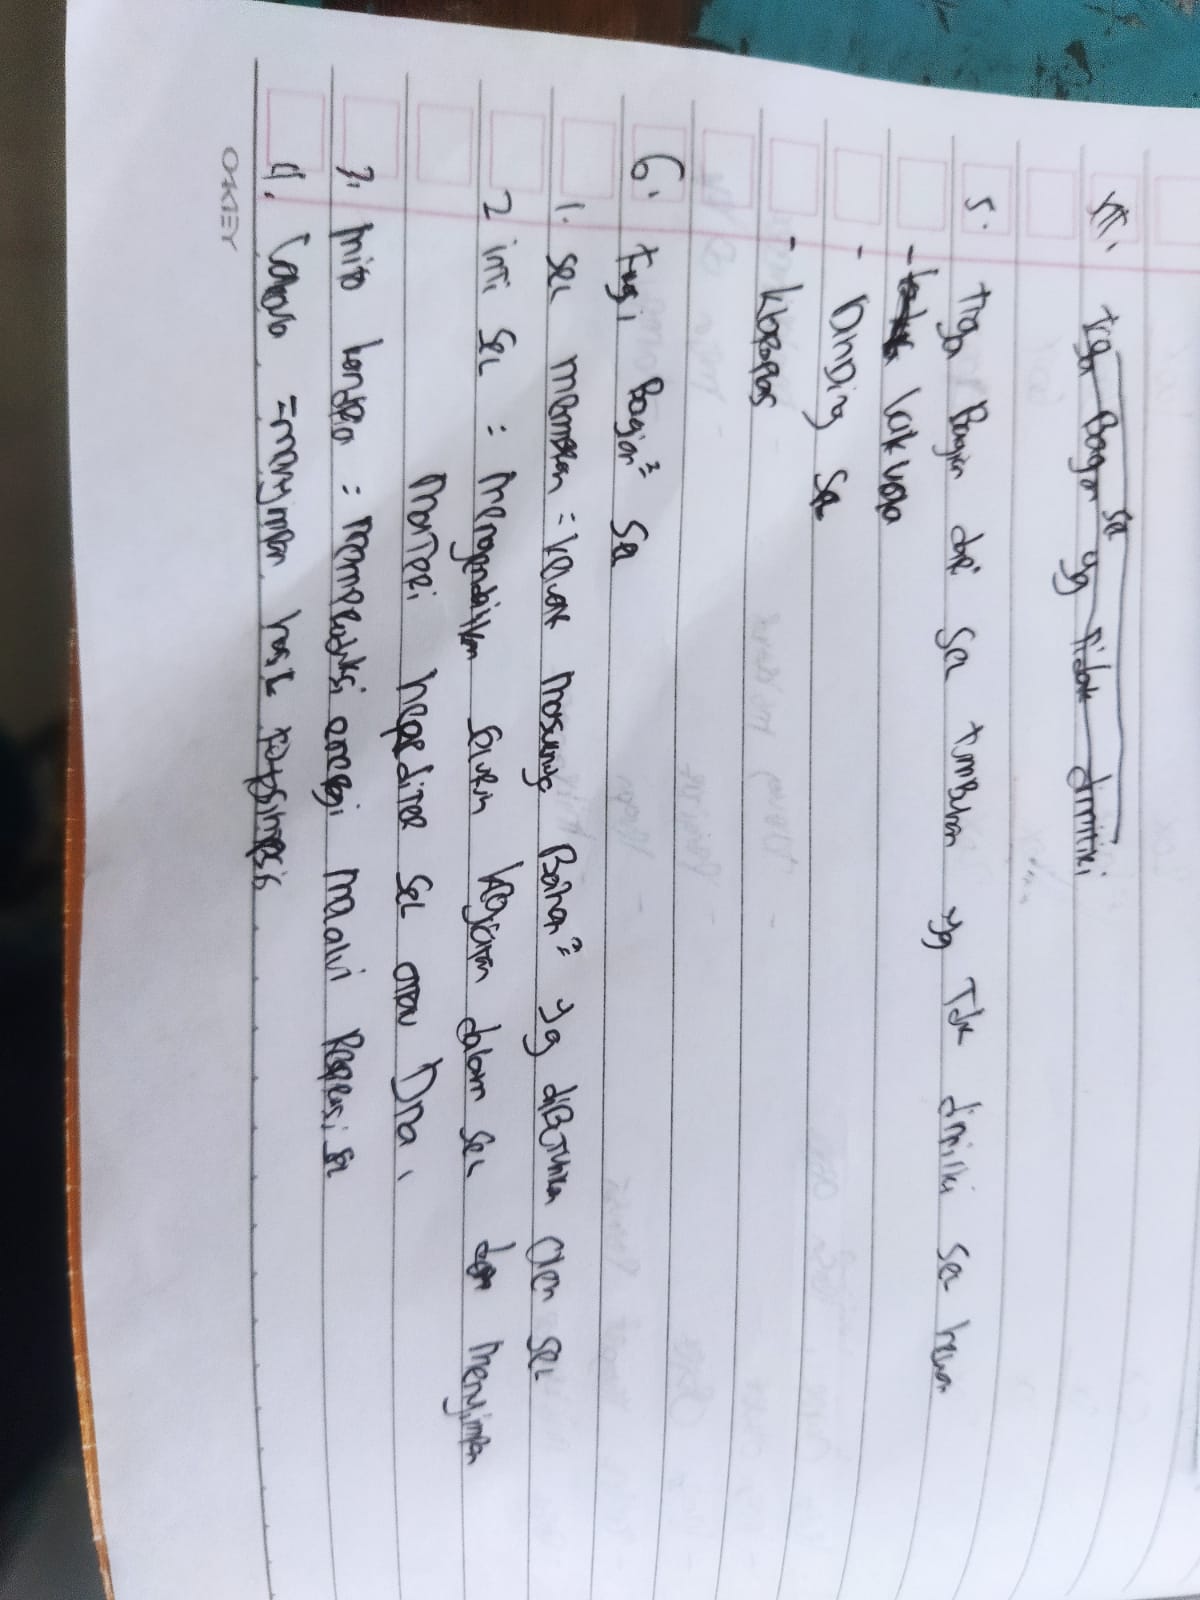 5. tiga Bagian dri sel tumbuhan yg Tdk dimiliki sel hewan
- Dinding sel
6. Fugsi Bagian² sel
1. sel membran = keluar masuknya Bahan² yg diButuhkan oleh sel
2 inti sel : Mengendalikan seluruh kegiatan dalam sel dan menyimpan
Materi herediter sel atau Dna,
3. mito kondria : memproduksi energi Malalui Respirasi sel
4. = menyimpan hasil fotosintesis
OKEY